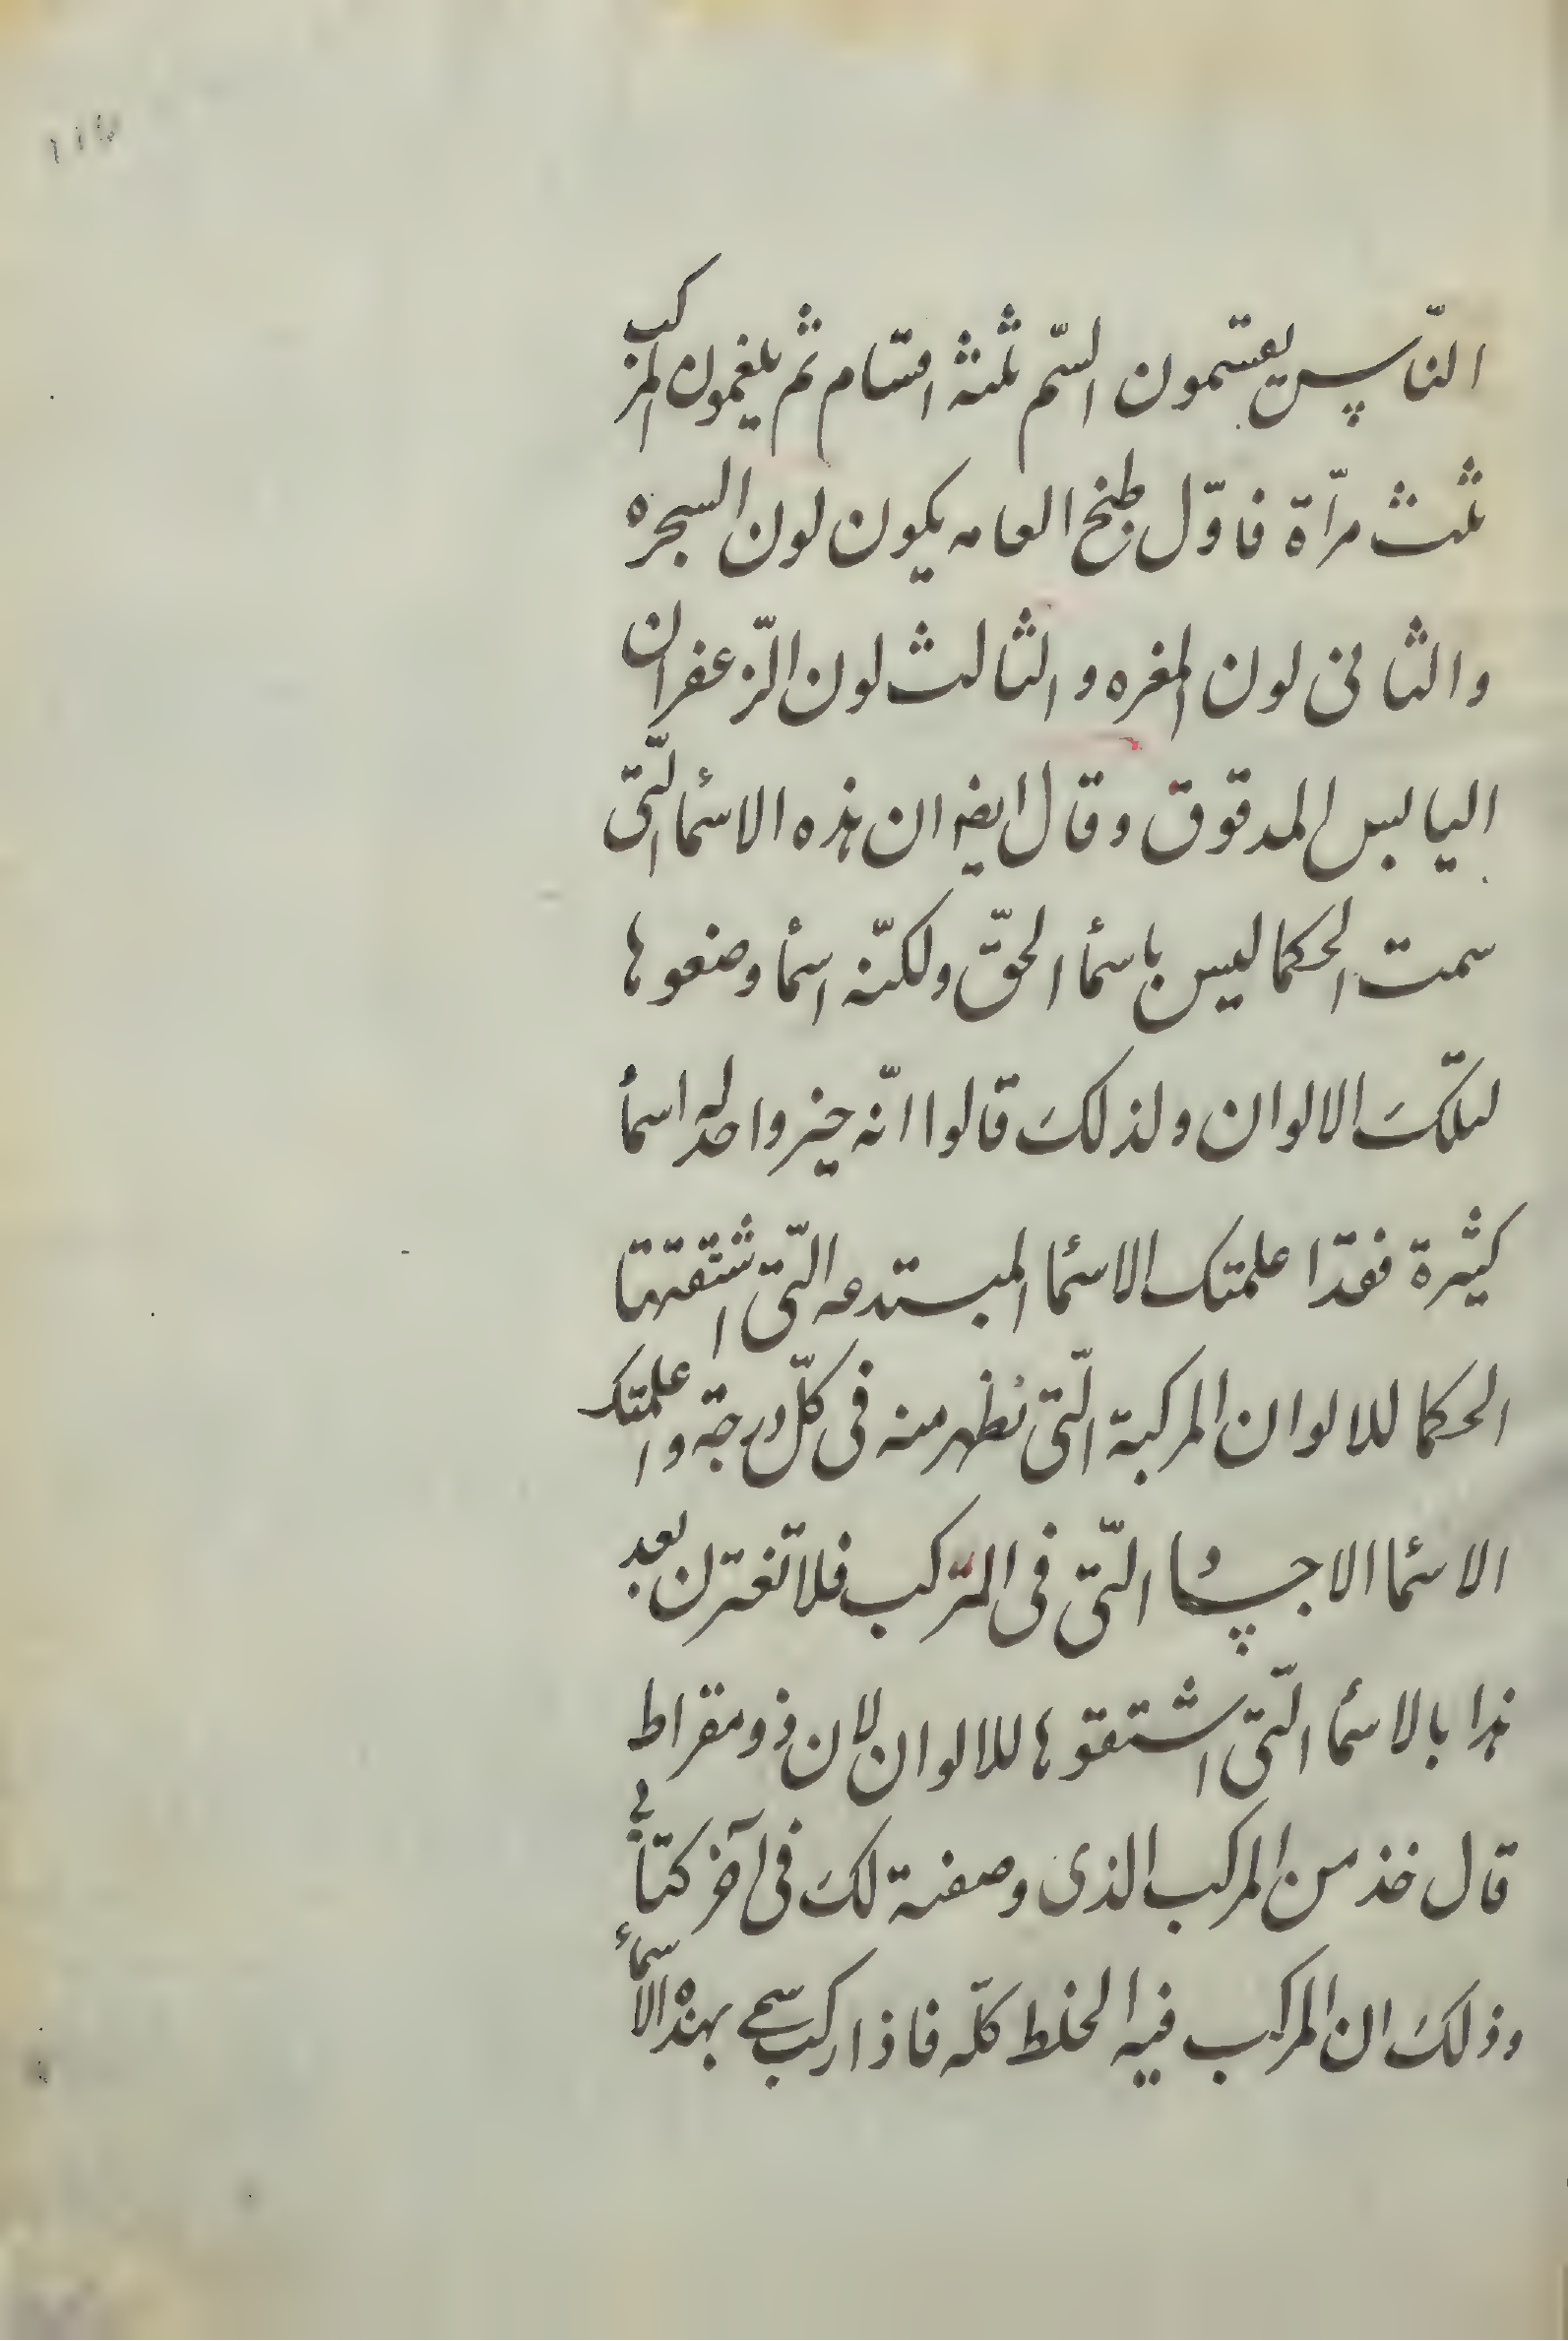 النّاس يقسمون السّم ثلثة اقسام ثم يلغمون المركب
ثلث مرّاة فاوّل طبخ العامه يكون لون السجره
والثانى لون المغره والثالث لون الزّعفران
اليابس المدقوق وقال ايضا ان هذه الاسمٔا الّتى
سمت الحكما ليس باسمٔا الحقّ ولكنّه اسمٔا وضعوها
لتلك الالوان ولذلك قالوا انّه خير واحد له اسمٔا
كثيرة فقد اعلمتك الاسمٔا المبتدعه الّتى اشتقتها
الحكما للالوان المركبة الّتى تظهر منه فى كلّ درجة واعلمتك
الاسمٔا الاجساد الّتى فى المتركب فلا تغترن بعد
هذا بالاسمٔا الّتى اشتقوها للالوان لان ذومقراط
قال خذ من المركب الذى وصفته لك فى آخر كتابى
وذلك ان المركب فيه الخلط كلّه فاذا ركب سمى بهذه الاسمأ